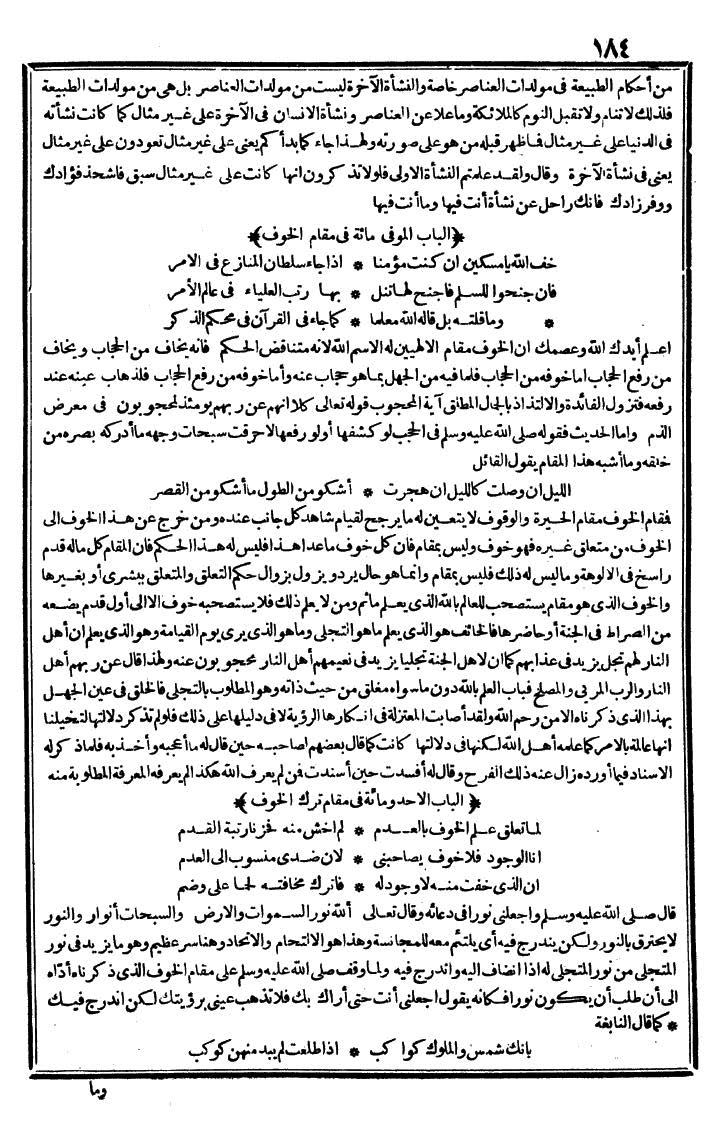 ١٨٤
من أحكام الطبيعة فى مولدات العناصر خاصة والنشأة الآخرة ليست من مولدات العناصر بل هى من مولدات الطبيعة
فلذلك لا تنام ولا تقبل النوم كالملائكة وما علا عن العناصر ونشأة الانسان فى الآخرة على غير مثال كما كانت نشأته
فى الدنيا على غير مثال فاظهر قبله من هو على صورته ولهذا جاء كما بدأكم يعنى على غير مثال تعودون على غير مثال
يعنى فى نشأة الآخرة وقال ولقد علمتم النشأة الاولى فلولا تذكرون انها كانت على غير مثال سبق فاشحذ فؤادك
ووفر زادك فانك راحل عن نشأة أنت فيها وما أنت فيها
﴿الباب الموفى مائة فى مقام الخوف﴾
خف الله يا مسكين ان كنت مؤمنا * اذا جاء سلطان المنازع فى الامر
فان جنحوا للسلم فاجنح لها تنل * بها رتب العلياء فى عالم الأمر
* وما قلته بل قاله الله معلما * كما جاء فى القرآن فى محكم الذكر
اعلم أيدك الله وعصمك ان الخوف مقام الالهيين له الاسم الله لانه متناقض الحكم فانه يخاف من الحجاب ويخاف
من رفع الحجاب اما خوفه من الحجاب فلما فيه من الجهل بما هو حجاب عنه وأما خوفه من رفع الحجاب فلذهاب عينه عند
رفعه فتزول الفائدة والالتذاذ بالجمال المطلق آية المحجوب قوله تعالى كلا انهم عن ربهم يومئذ لمحجوبون فى معرض
الذم واما الحديث فقوله صلى الله عليه وسلم فى الحجب لو كشفها أو لو رفعها لاحرقت سبحات وجهه ما أدركه بصره من
خلقه وما أشبه هذا المقام بقول القائل
الليل ان وصلت كالليل ان هجرت * أشكو من الطول ما أشكو من القصر
فقام الخوف مقام الحيرة والوقوف لا يتعين له ما يرجح لقيام شاهد كل جانب عنده ومن خرج عن هذا الخوف الى
الخوف من متعلق غيره فهو خوف وليس بمقام فان كل خوف ما عدا هذا فليس له هذا الحكم فان المقام كل ماله قدم
راسخ فى الالوهة وما ليس له ذلك فليس بمقام وانما هو حال يرد ويزول بزوال حكم التعلق والمتعلق ببشرى أو بغيرها
والخوف الذى هو مقام يستصحب للعالم بالله الذى يعلم ما ثم ومن لا يعلم ذلك فلا يستصحبه خوف الا الى أول قدم يضعه
من الصراط فى الجنة أو حاضرها فالخائف هو الذى يعلم ما هو التجلى وما هو الذى يرى يوم القيامة وهو الذى يعلم ان أهل
النار لهم تجل يزيد فى عذابهم كما ان لاهل الجنة تجليا يزيد فى نعيمهم أهل النار محجوبون عنه ولهذا قال عن ربهم أهل
النار والرب المربى والمصلح فباب العلم بالله دون ما سواه مغلق من حيث ذاته وهو المطلوب بالتجلى فالخلق فى عين الجهل
بهذا الذى ذكرناه الا من رحم الله ولقد أصابت المعتزلة فى انكارها الرؤية لا فى دليلها على ذلك فلو لم تذكر دلالتها لتخيلنا
انها عالمة بالامر كما علمه أهل الله لكنها فى دلالتها كانت كما قال بعضهم لصاحبه حين قال له ما أعجبه وأخذ به فلما ذكر له
الاسناد فيما أورده زال عنه ذلك الفرح وقال له أفسدت حين أسندت فمن لم يعرف الله هكذا لم يعرفه المعرفة المطلوبة منه
﴿الباب الاحد ومائة فى مقام ترك الخوف﴾
لما تعلق علم الخوف بالعدم * لم اخش منه فزنا رتبة القدم
انا الوجود فلا خوف يصاحبنى * لان ضدى منسوب الى العدم
ان الذى خفت منه لا وجود له * فاترك مخافته لحما على وضم
قال صلى الله عليه وسلم واجعلنى نورا فى دعائه وقال تعالى ألله نور السموات والارض والسبحات أنوار والنور
لا يحترق بالنور ولكن يندرج فيه أى يلتئم معه للمجانسة وهذا هو الالتحام والاتحاد وهنا سر عظيم وهو ما يزيد فى نور
المتجلى من نور المتجلى له اذا انضاف اليه واندرج فيه ولما وقف صلى الله عليه وسلم على مقام الخوف الذى ذكرناه أدّاه
الى أن طلب أن يكون نورا فكانه يقول اجعلنى أنت حتى أراك بك فلا تذهب عينى برؤيتك لكن اندرج فيك
* كما قال النابغة
بانك شمس والملوك كواكب * اذا طلعت لم يبد منهن كوكب
وما